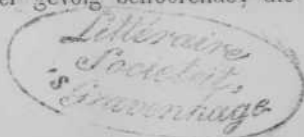 gevolg behoorende,
Littéraire
Societeit,
's Gravenhage